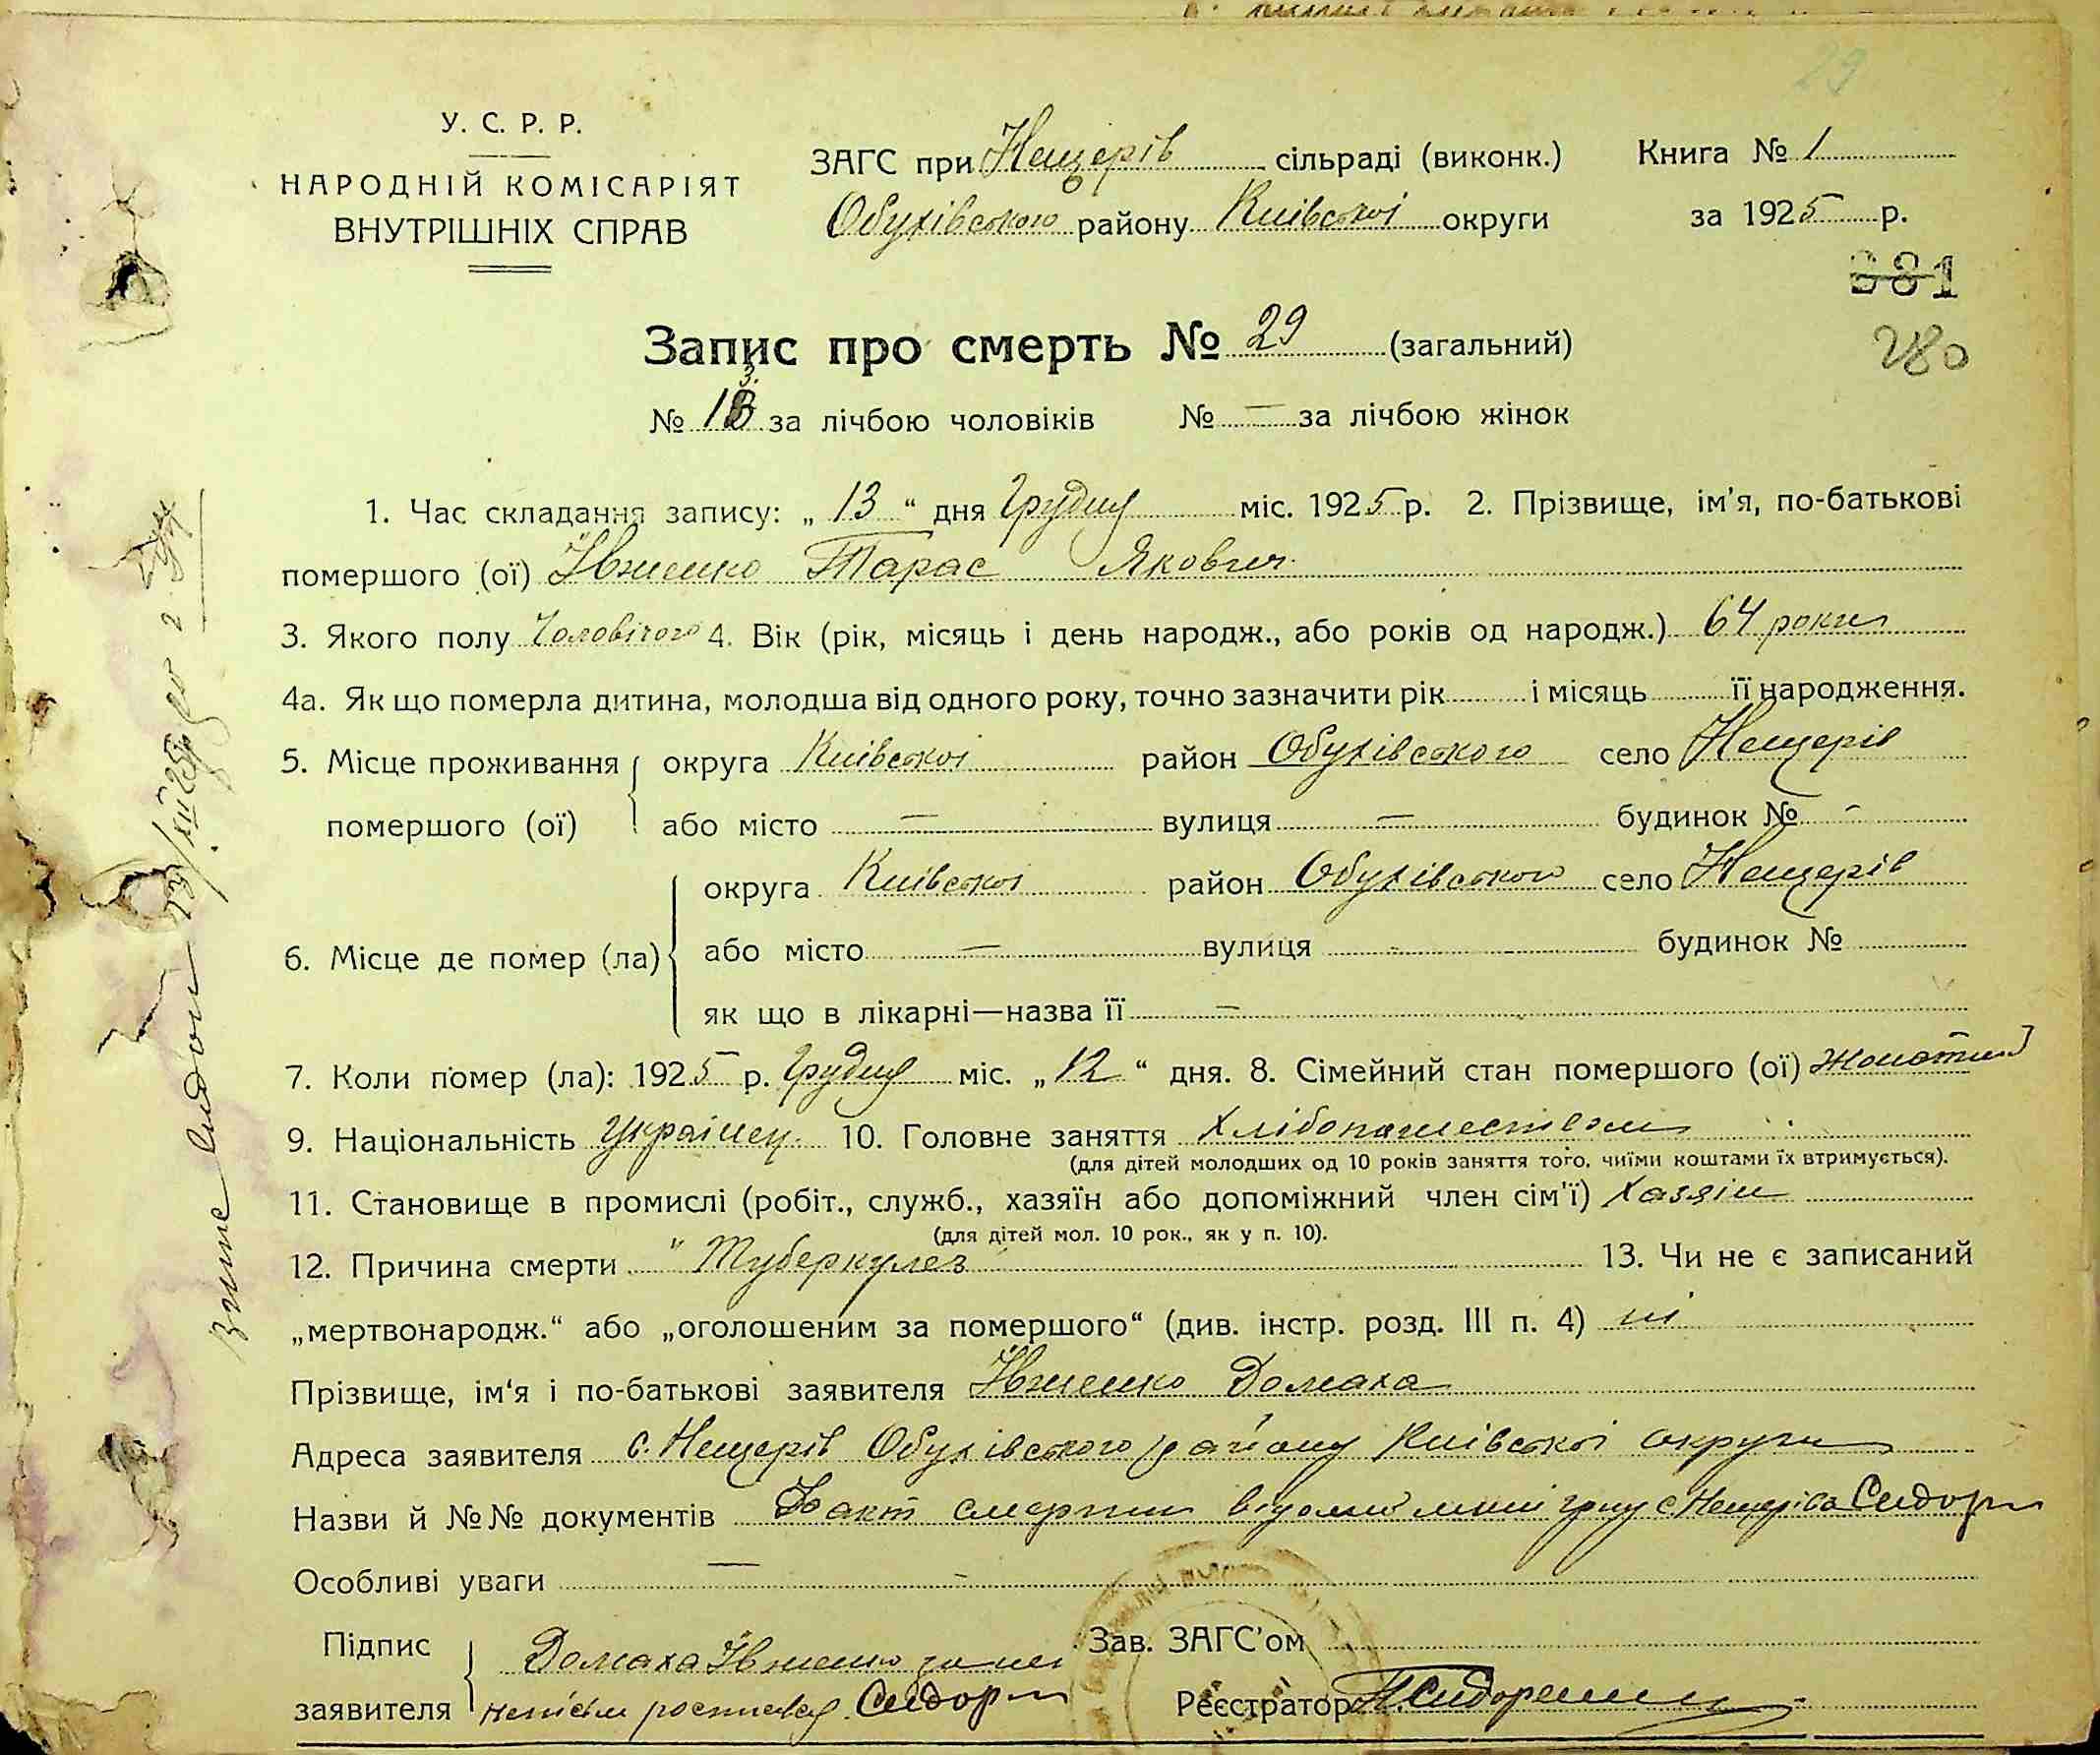 29
У. С. Р. Р.
НАРОДНІЙ КОМІСАРІЯТ
ВНУТРІШНІХ СПРАВ
ЗАГС при Нещерів сільраді (виконк.)
Обухівського району Київської округи
Книга № 1
за 1925 р.
381
280
Запис про смерть № 29 (загальний)
№ 13 за лічбою чоловіків № — за лічбою жінок
1. Час складання запису: „ 13 “ дня Грудня міс. 1925 р. 2. Прізвище, ім'я, по-батькові
помершого (ої) Івженко Тарас Якович
3. Якого полу Чоловічого 4. Вік (рік, місяць і день народж., або років од народж.) 64 роки
4а. Як що померла дитина, молодша від одного року, точно зазначити рік і місяць її народження.
5. Місце проживання округа Київської район Обухівського село Нещерів
помершого (ої) або місто — вулиця — будинок № -
округа Київської район Обухівського село Нещерів
6. Місце де помер (ла) або місто — вулиця - будинок №
як що в лікарні—назва її —
7. Коли помер (ла): 1925 р. Грудня міс. „ 12 “ дня. 8. Сімейний стан помершого (ої) жонатий
9. Національність Українец. 10. Головне заняття Хлібопашеством
(для дітей молодших од 10 років заняття того, чиїми коштами їх втримується).
11. Становище в промислі (робіт., служб., хазяїн або допоміжний член сім'ї) Хазяін
(для дітей мол. 10 рок., як у п. 10).
12. Причина смерти " Туберкулез 13. Чи не є записаний
„мертвонародж.“ або „оголошеним за помершого“ (див. інстр. розд. III п. 4) ні
Прізвище, ім'я і по-батькові заявителя Івженко Домаха
Адреса заявителя с. Нещерів Обухівського району Київської округи
Назви й №№ документів Факт смерти відомий с. Нещерів Сидор
Особливі уваги —
Підпис Домаха Івженко Зав. ЗАГС'ом
заявителя Сидор Реєстратор Сидоренко